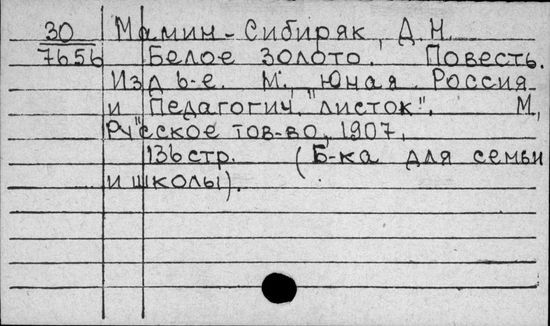 30 Мамин-Сибиряк, Д.Н.
7656 Белое золото. Повесть.
Изд 6-е. М., "Юная Россия
и Педагогич. "листок". М.,
Русское тов-во, 1907.
136 стр. (Б-ка для семьи
и школы).